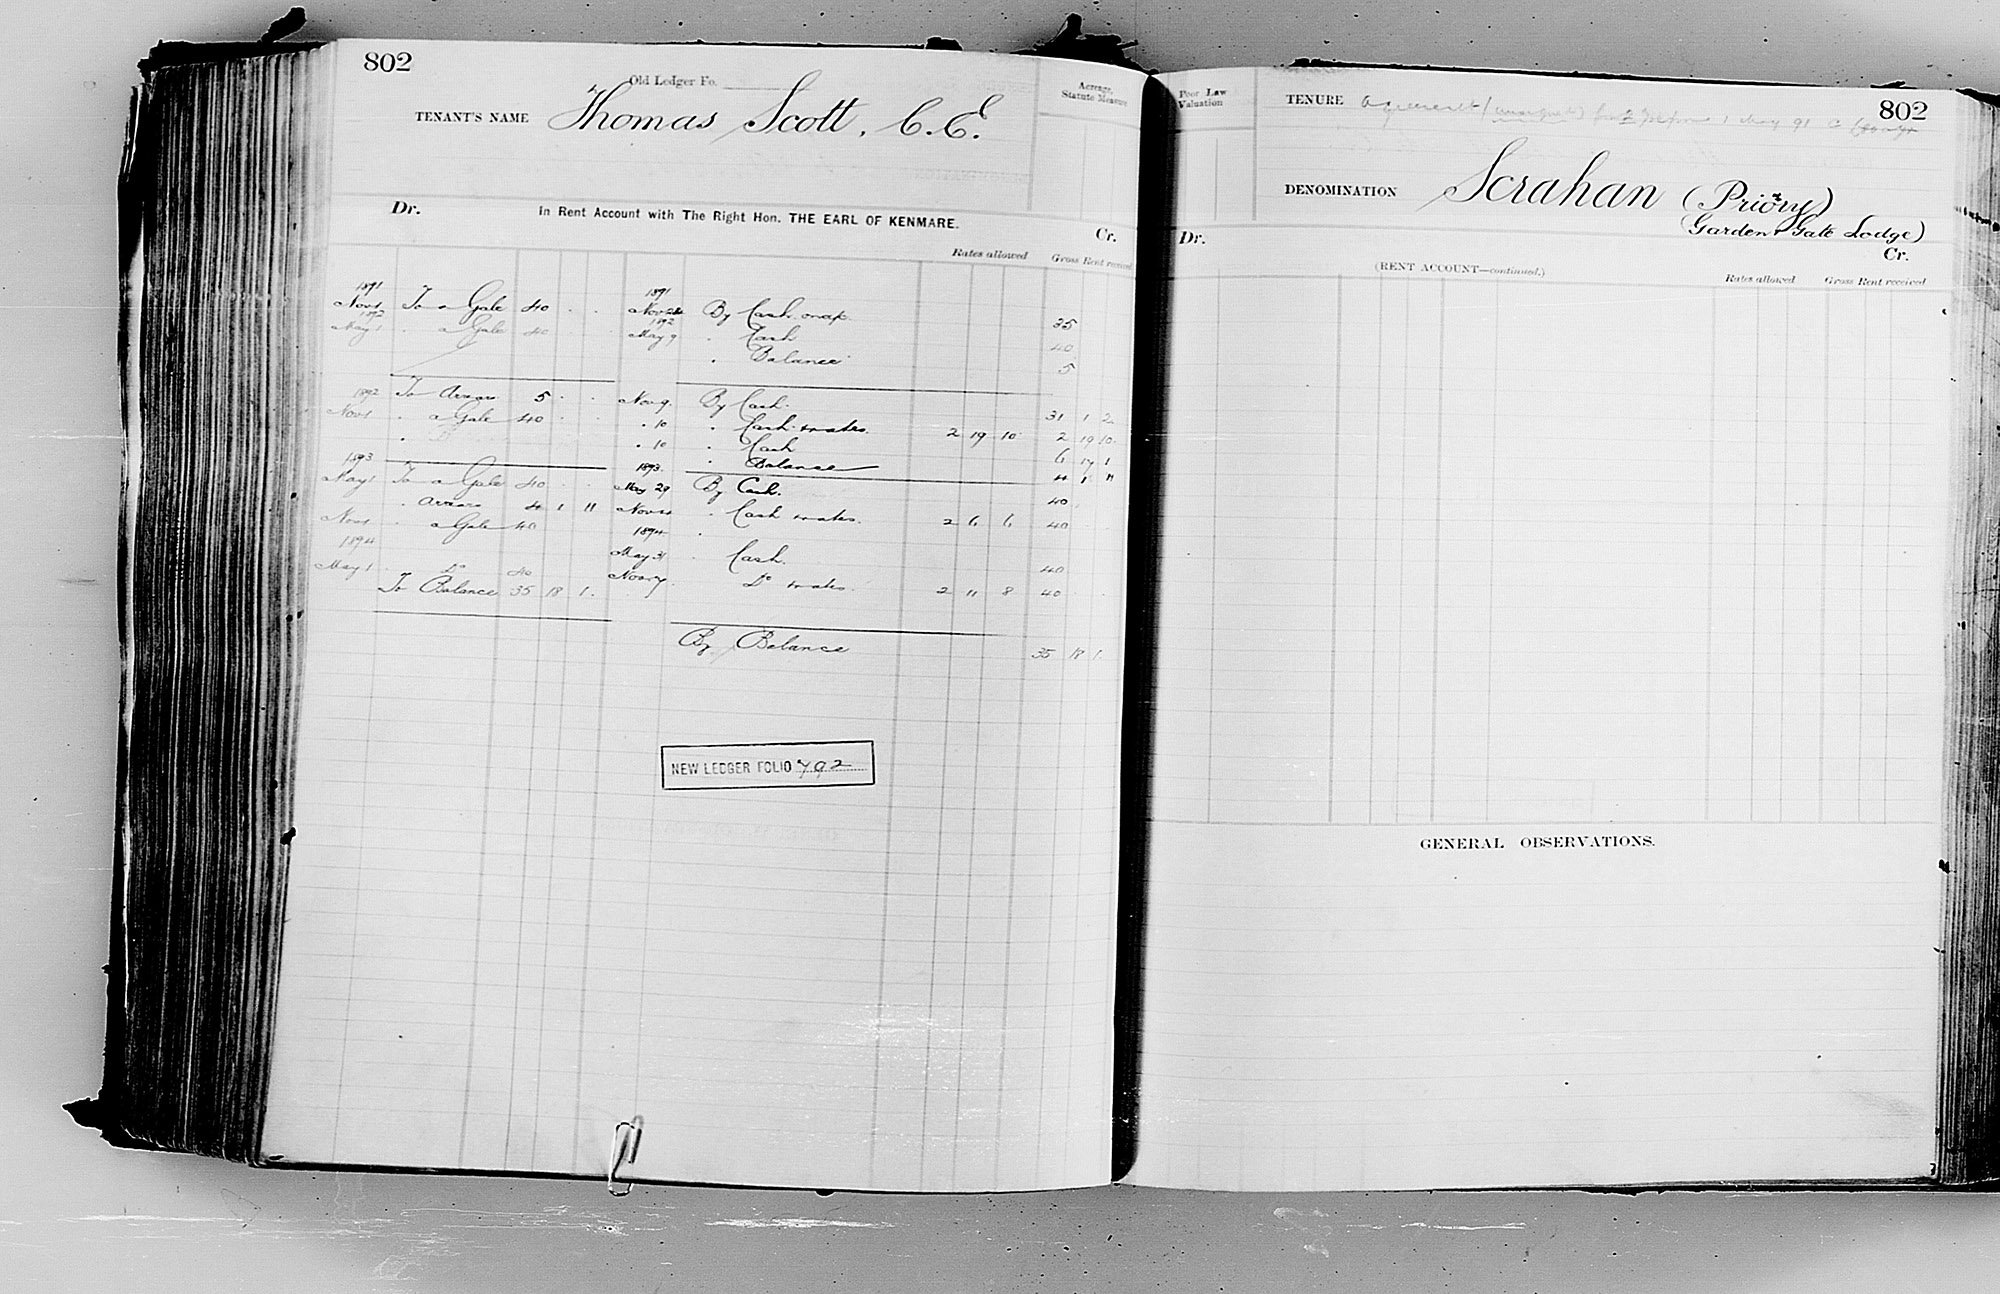 802
Old Ledger Fo.
TENANT'S NAME Thomas Scott, C.E.
Acreage, Statute Measure
Dr. In Rent Account with The Right Hon. THE EARL OF KENMARE. Cr.
Rates allowed Gross Rent received
1891 1891
Nov 1 To a Gale 40 . . Nov 24 By Cash on a/c 35
1892 1892
May 1 . a Gale 40 May 9 . Cash 40
. Balance 5
1892 To Arrears 5 . . Nov 9. By Cash. 31 1 2
Nov 1 . a Gale 40 . 10 . Cash & rates. 2 19 10 2 19 10
. 10 . Cash 6 17 1
. Balance 4 1 11
1893 1893
May 1 To a Gale 40 . . May 29 By Cash. 40
. Arrears 4 1 11 Nov 4 . Cash & rates. 2 6 6 40
Nov 1 . a Gale 40
1894 1894
May 31 Cash. 40
May 1 Do 40 Nov 7. Do & rates. 2 11 8 40
To Balance 35 18 1.
By Balance 35 18 1
NEW LEDGER FOLIO 792
Poor Law Valuation
TENURE Agreement ( ) 1 May 91
802
DENOMINATION Scrahan (Priory)
(Garden & Gate Lodge)
Dr. Cr.
(RENT ACCOUNT—continued.)
Rates allowed Gross Rent received
GENERAL OBSERVATIONS.